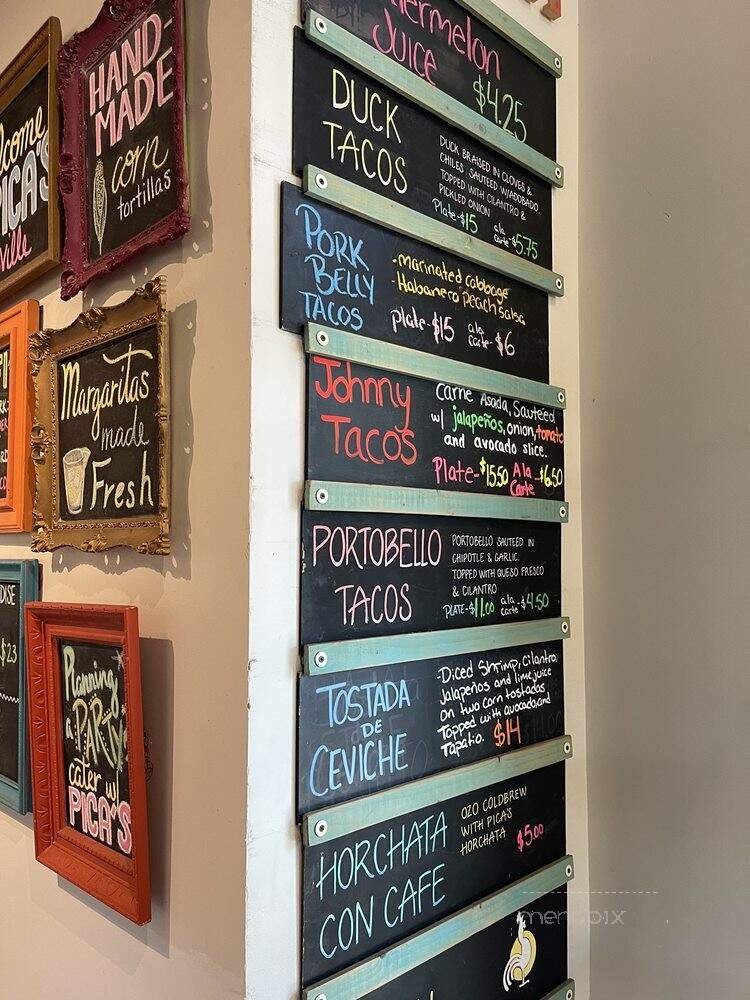 Welcome
PICA'S
ville
HAND-
MADE
corn
tortillas
Margaritas
made
Fresh
$23
Planning
a PARTY
cater w/
PICA'S
JUICE
$4.25
DUCK
TACOS
DUCK BRAISED IN CLOVES &
CHILES. SAUTEED W/ADOBADO.
TOPPED WITH CILANTRO &
PICKLED ONION
Plate-$15 a la carte-$5.75
PORK
BELLY
TACOS
-marinated cabbage
-Habanero peach salsa
plate-$15 a la carte-$6
Johnny
Tacos
Carne Asada, Sauteed
w/ jalapeños, onion, tomato
and avocado slice.
Plate-$15.50 A la Carte-$6.50
PORTOBELLO
TACOS
PORTOBELLO SAUTEED IN
CHIPOTLE & GARLIC.
TOPPED WITH QUESO FRESCO
& CILANTRO
PLATE-$11.00 a la carte-$4.50
TOSTADA
DE
CEVICHE
-Diced Shrimp, cilantro,
jalapeños and lime juice
on two corn tostadas
Topped with avocado, and
Tapatio. $14
HORCHATA
CON CAFE
OZO COLDBREW
WITH PICA'S
HORCHATA
$5.00